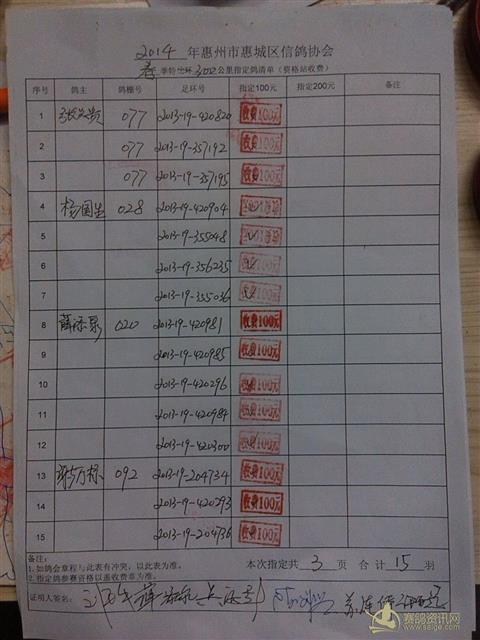 2014 年惠州市惠城区信鸽协会
春 季特比环 300 公里指定鸽清单（资格站收费）
序号 鸽主 鸽棚号 足环号 指定100元 指定200元 备注
1 077 2013-19-420820 收费100元
2 077 2013-19-357192 收费100元
3 077 2013-19-357195 收费100元
4 杨国生 028 2013-19-420904
5 2013-19-355048
6 2013-19-356235
7 2013-19-355036
8 020 2013-19-420981 收费100元
9 2013-19-420985 收费100元
10 2013-19-420296 收费100元
11 2013-19-420984 收费100元
12 2013-19-420300 收费100元
13 092 2013-19-204734 收费100元
14 2013-19-420293 收费100元
15 2013-19-204736 收费100元
备注：
1.如鸽会章程与此表有冲突，以此表为准。
2.指定鸽参赛资格以盖收费章为准。
本次指定共 3 页 合计 15 羽
证明人签名：
赛鸽资讯网
www.saige.com